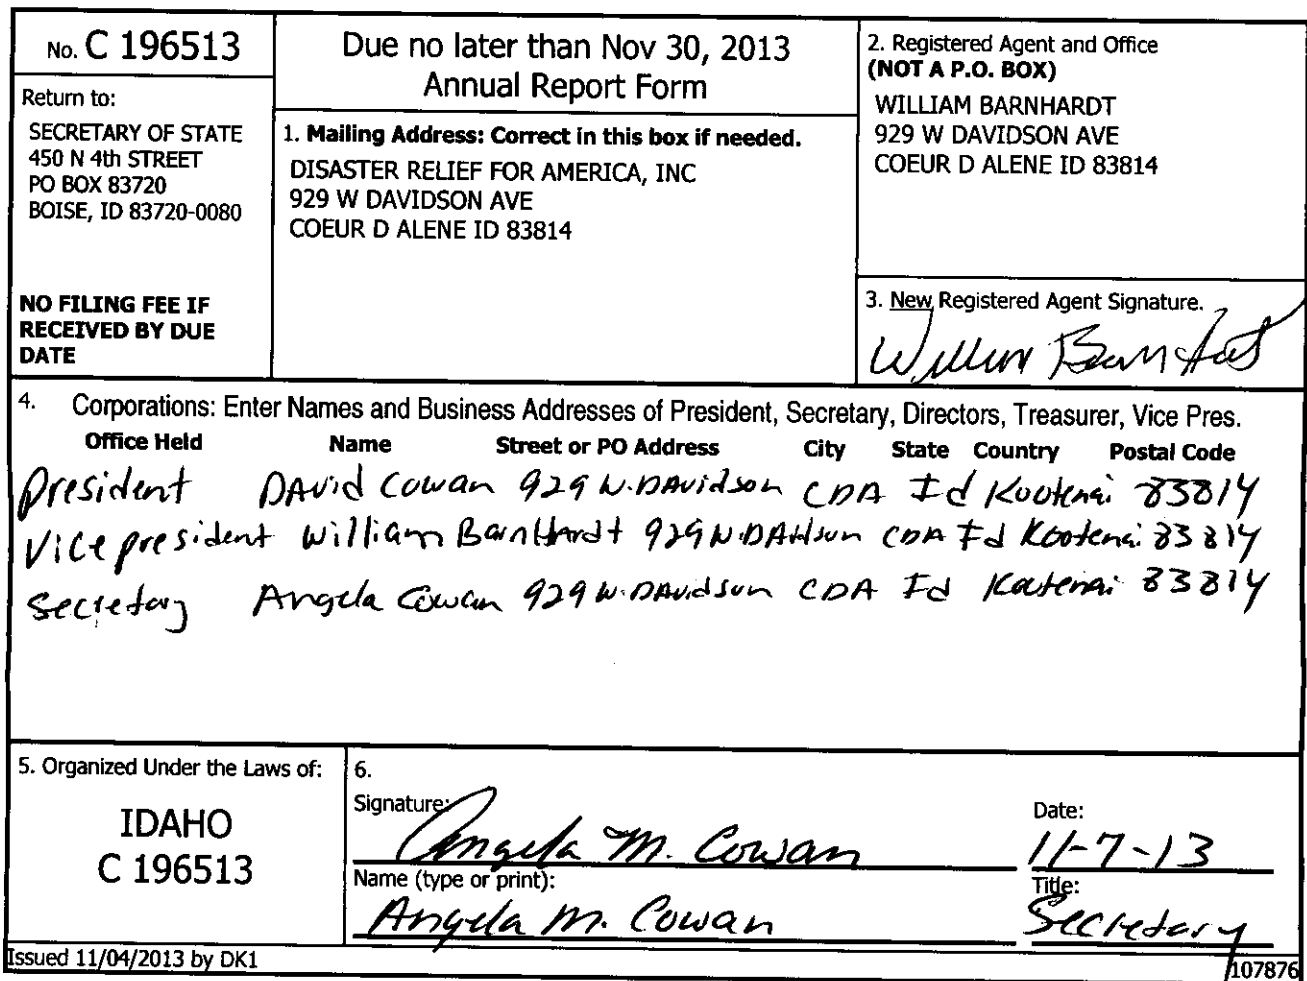 No. C 196513
Return to:
SECRETARY OF STATE
450 N 4th STREET
PO BOX 83720
BOISE, ID 83720-0080
NO FILING FEE IF
RECEIVED BY DUE
DATE
Due no later than Nov 30, 2013
Annual Report Form
1. Mailing Address: Correct in this box if needed.
DISASTER RELIEF FOR AMERICA, INC
929 W DAVIDSON AVE
COEUR D ALENE ID 83814
2. Registered Agent and Office
(NOT A P.O. BOX)
WILLIAM BARNHARDT
929 W DAVIDSON AVE
COEUR D ALENE ID 83814
3. New Registered Agent Signature.
4. Corporations: Enter Names and Business Addresses of President, Secretary, Directors, Treasurer, Vice Pres.
Office Held Name Street or PO Address City State Country Postal Code
President DAvid Cowan 929 W. DAvidson CDA Id Kootenai 83814
Vice president William BarnHardt 929 W. DAvidson CDA Id Kootenai 83814
Secretary Angela Cowan 929 W. DAvidson CDA Id Kootenai 83814
5. Organized Under the Laws of:
IDAHO
C 196513
6.
Signature: Angela M. Cowan
Date: 11-7-13
Name (type or print): Angela M. Cowan
Title: Secretary
Issued 11/04/2013 by DK1
107876